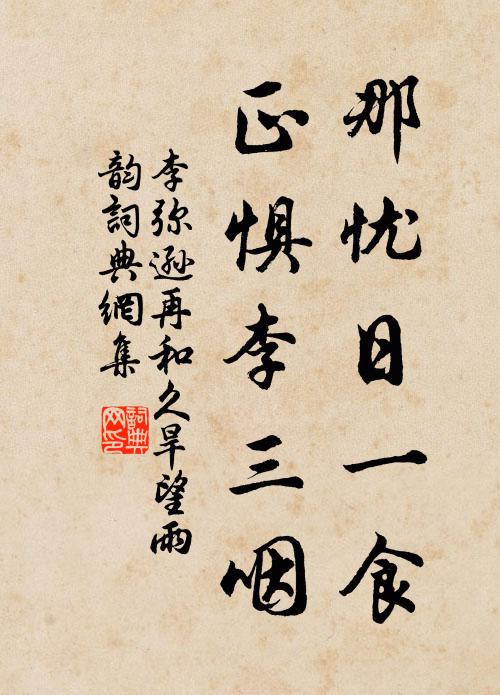 那忧日一食
正惧李三咽
李弥逊再和久旱望雨
韵詞典網集
詞典
网印